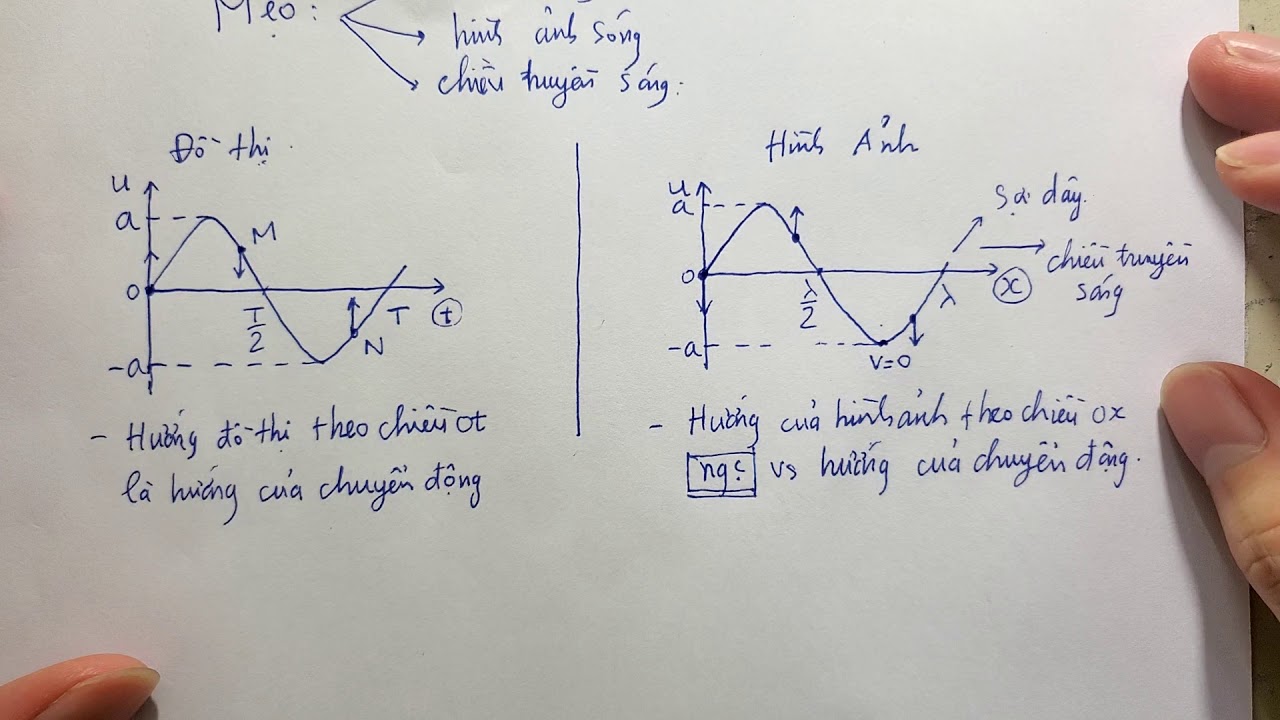 Mẹo:
hình ảnh sóng
chiều truyền sóng:
Đồ thị
u
a
M
0
T/2
T
t
N
-a
- Hướng đồ thị theo chiều ot
là hướng của chuyển động
Hình Ảnh
u
a
Sợi dây
chiều truyền
sóng
0
λ/2
λ
x
-a
v=0
- Hướng của hình ảnh theo chiều ox
ngc vs hướng của chuyển động.